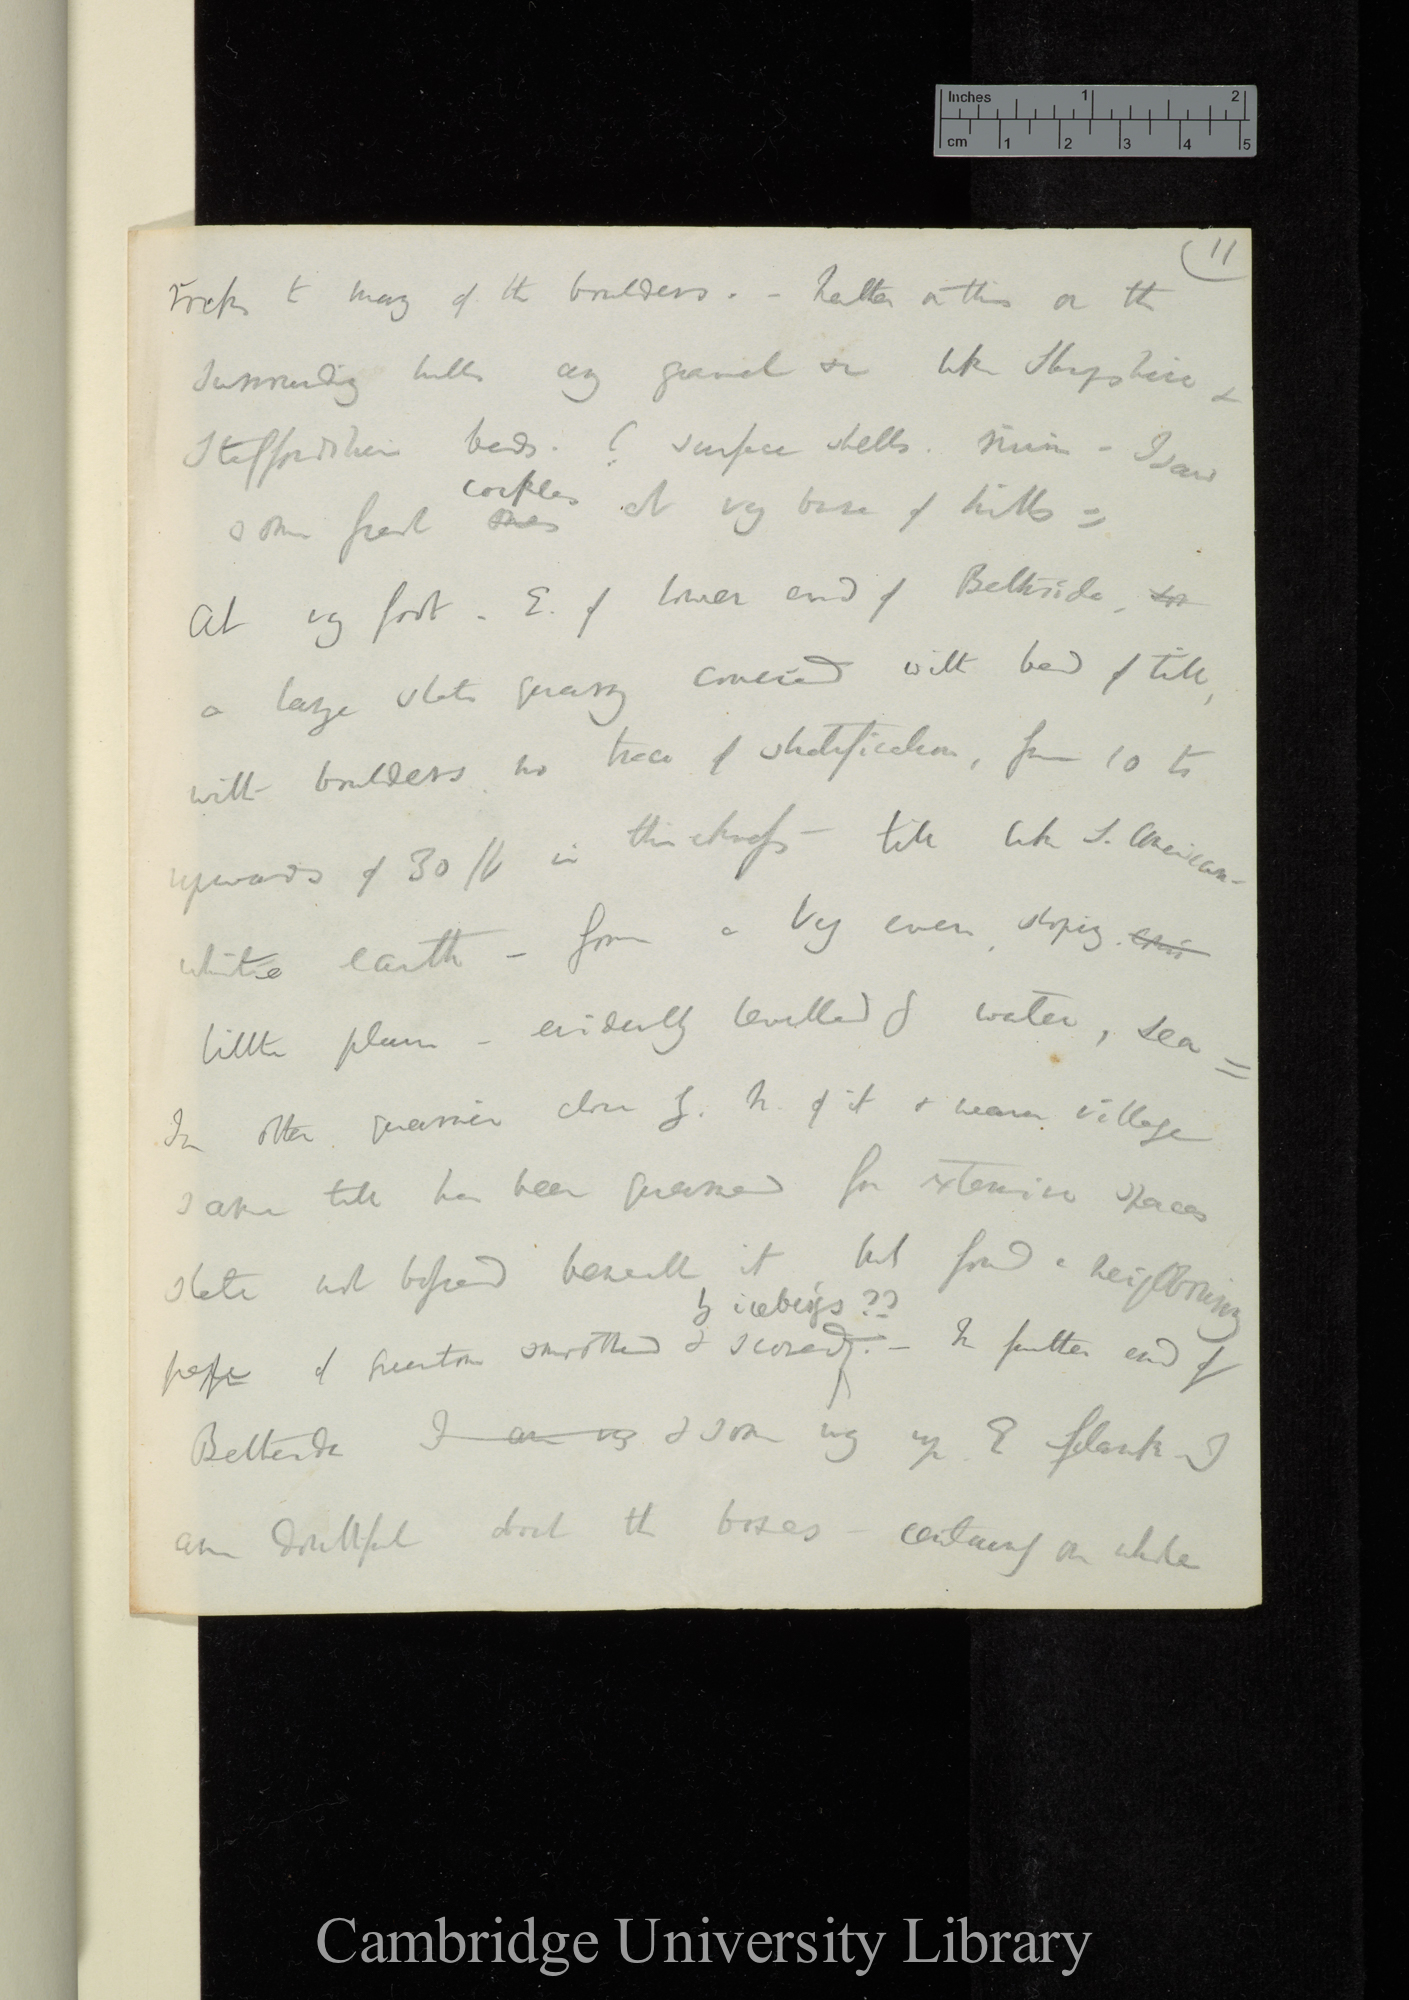 Inches 1 2
cm 1 2 3 4 5
11
rocks to many of the boulders. – Neither on this or the
surrounding hills any gravel &c like Shropshire &
Staffordshire beds. ? surface shells. – I saw
cockles
some fresh ones at vy base of hills =
At vy foot. E. of lower end of
a large slate quarry covered with bed of till,
with boulders no trace of stratification, from 10 to
upwards of 30 ft in thickness – till like S. American
white earth – form a very even, sloping
little plain – evidently levelled by water, sea =
In other quarries close by. N. of it & nearer village
same till has been quarried for extensive spaces
slate not bossed beneath it but found a neighbouring
by icebergs ??
of greenstone smoothed & scored. – In further end of
I am vy & some way up E flank – I
am doubtful about the bosses – certainly on whole
Cambridge University Library